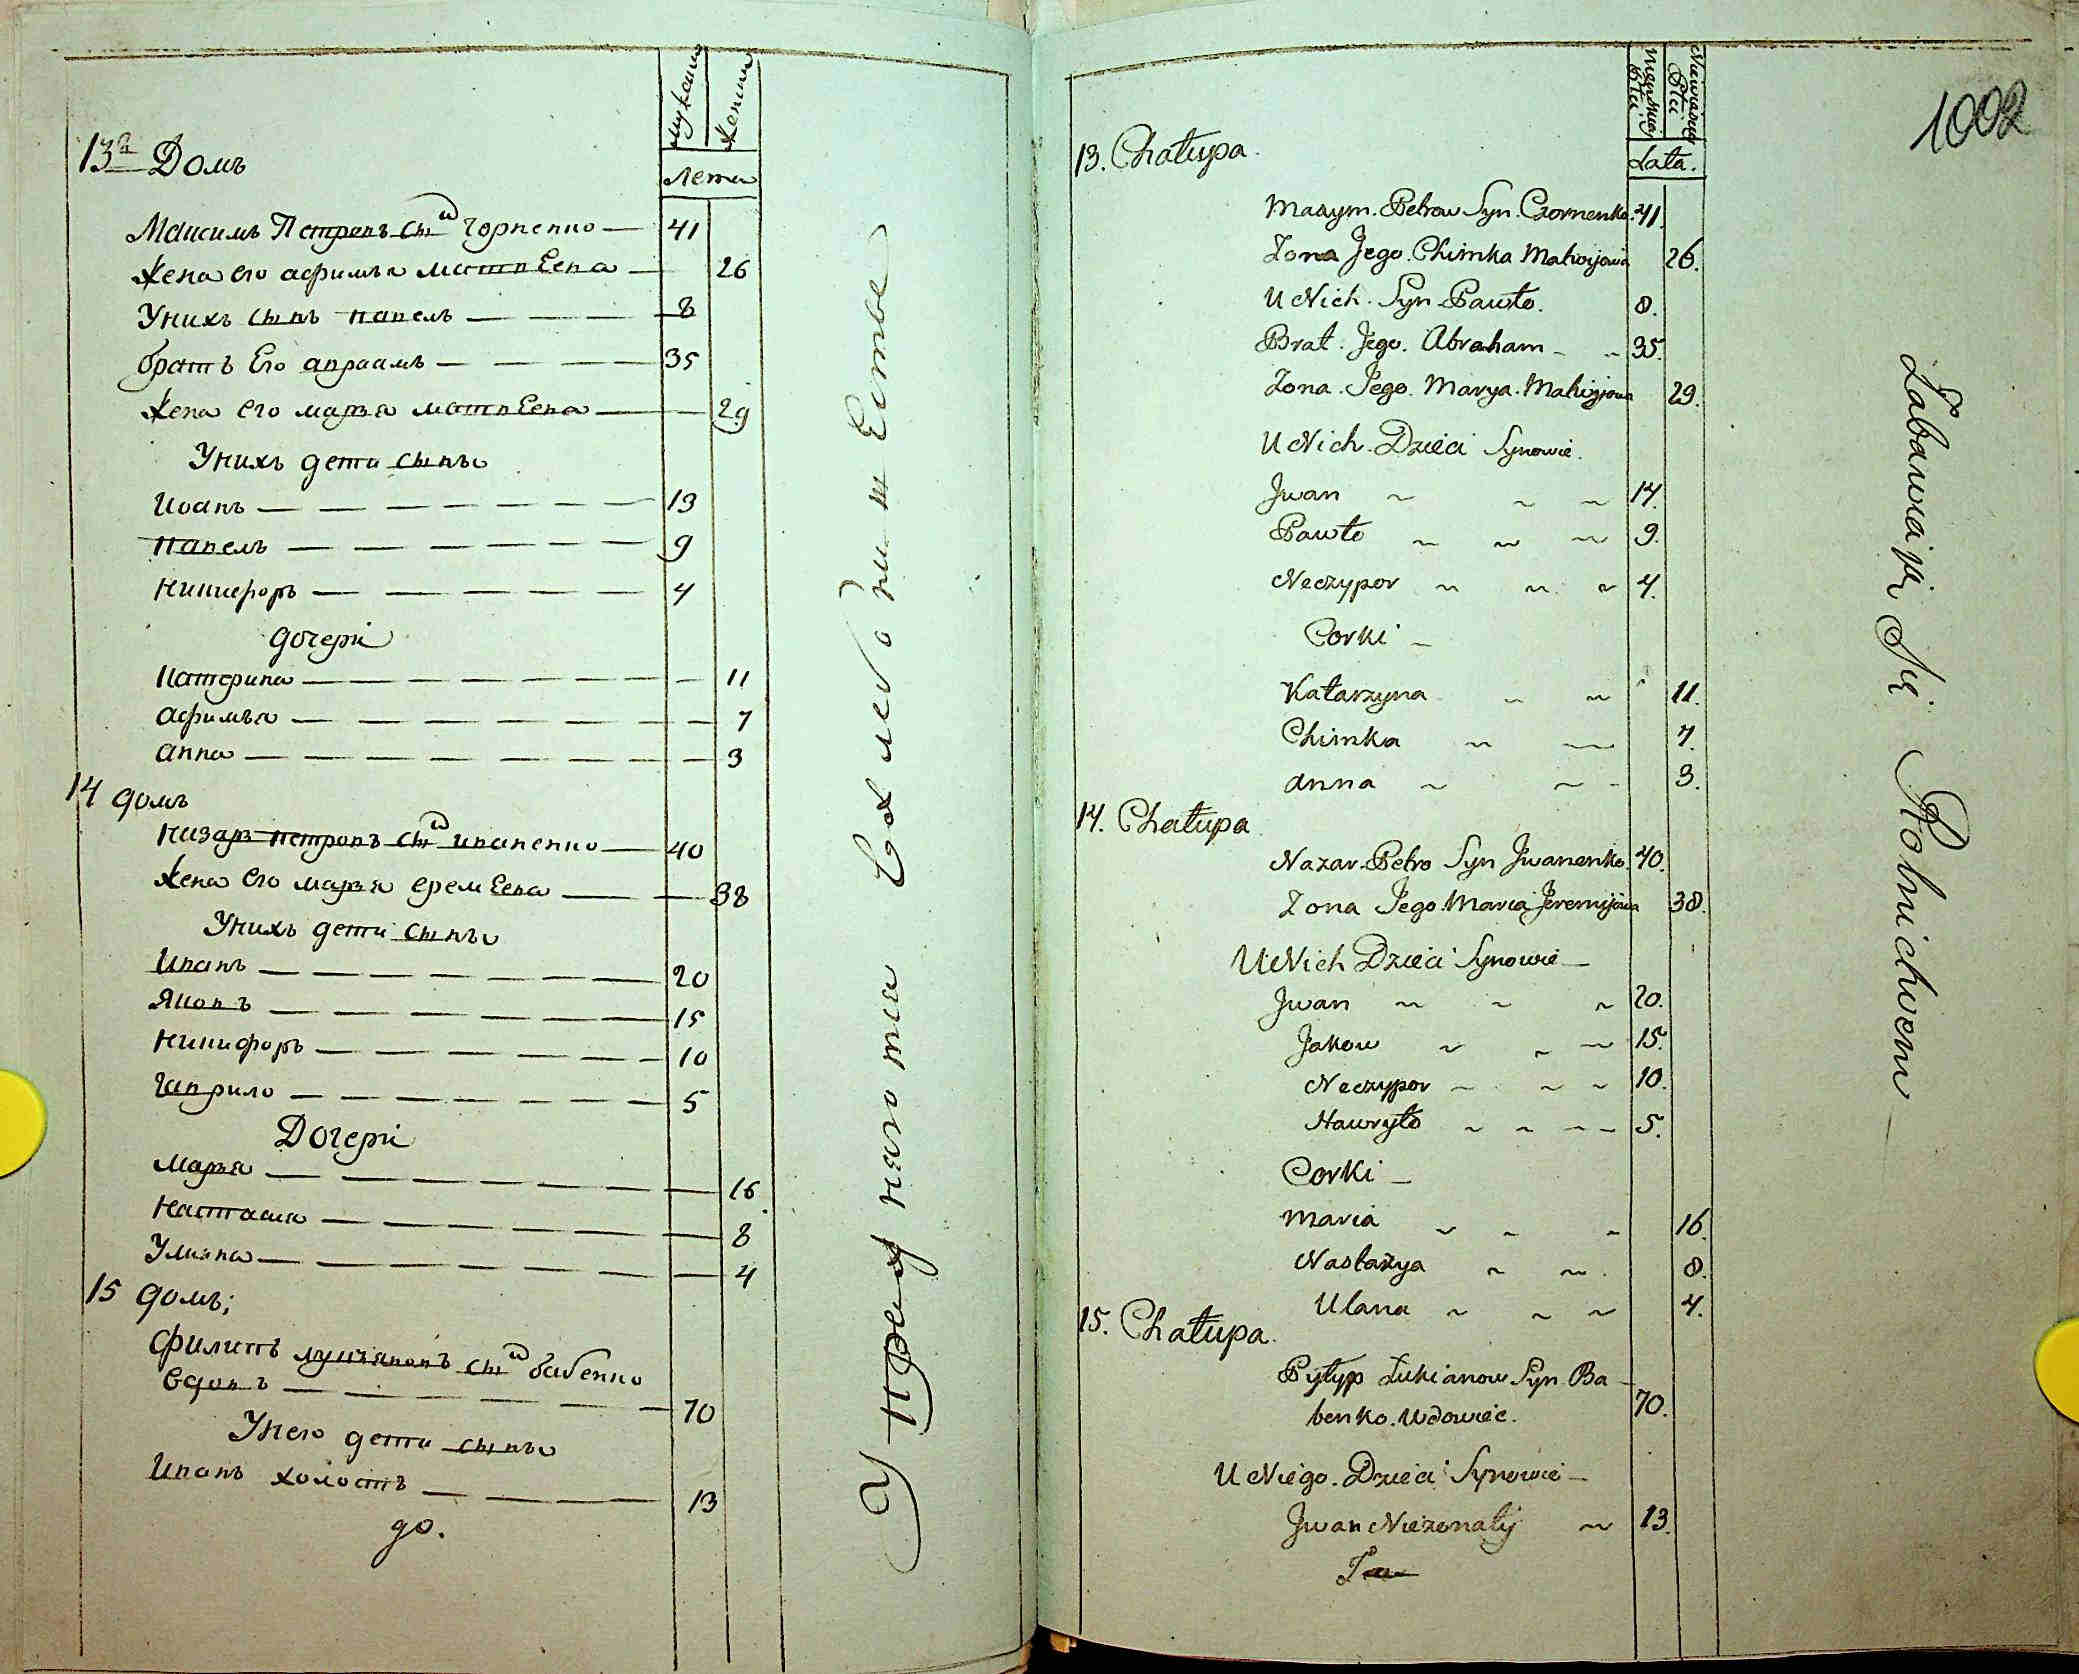 мужеска
женска
лета
13й Домъ
Максимъ Петровъ сынъ Чорненко — 41
жена его афимья матвЕева — 26
Унихъ сынъ павелъ — 8
братъ Его авраамъ — 35
жена его марья матвЕева — 29
Унихъ дети сыны
Иоанъ — 13
павелъ — 9
никифоръ — 4
дочери
катерина — 11
афимья — 7
анна — 3
14 домъ
назаръ петровъ сынъ иваненко — 40
жена Его марья еремЕева — 38
Унихъ дети сыны
Иванъ — 20
Яковъ — 15
никифоръ — 10
гаврило — 5
Дочери
марья — 16
настасья — 8
Ульяна — 4
15 домъ;
филипъ лукяновъ сынъ бабенко
вдовъ — 70
Унего дети сыны
Иванъ холостъ — 13
до.
1002
Męzkiej Płci.
Niewiasciej Płci
Lata.
13. Chałupa.
Maxym. Petrow Syn. Czornenko. 41.
Zona Jego. Chimka Matwijowa 26.
U Nich. Syn Pawło. 8.
Brat. Jego. Abraham 35.
Zona. Jego. Marya. Matwijowa 29.
U Nich. Dzieci Synowie.
Jwan 14.
Pawło 9.
Neczypor 4.
Corki
Katarzyna 11.
Chimka 7.
Anna 3.
14. Chałupa
Nazar. Petro Syn Jwanenko. 40.
Zona Jego. Maria Jeremijowa 38.
U Nich Dzieci Synowie
Jwan 20.
Jakow 15.
Neczypor 10.
Hawryło 5.
Corki
Maria 16.
Nastazya 8.
Ulana 4.
15. Chałupa.
Pyłyp Lukianow Syn Ba-
benko. Wdowiec. 70.
U Niego. Dzieci Synowie
Jwan Niezonaty 13.
Zabawiają Się Rolnictwem